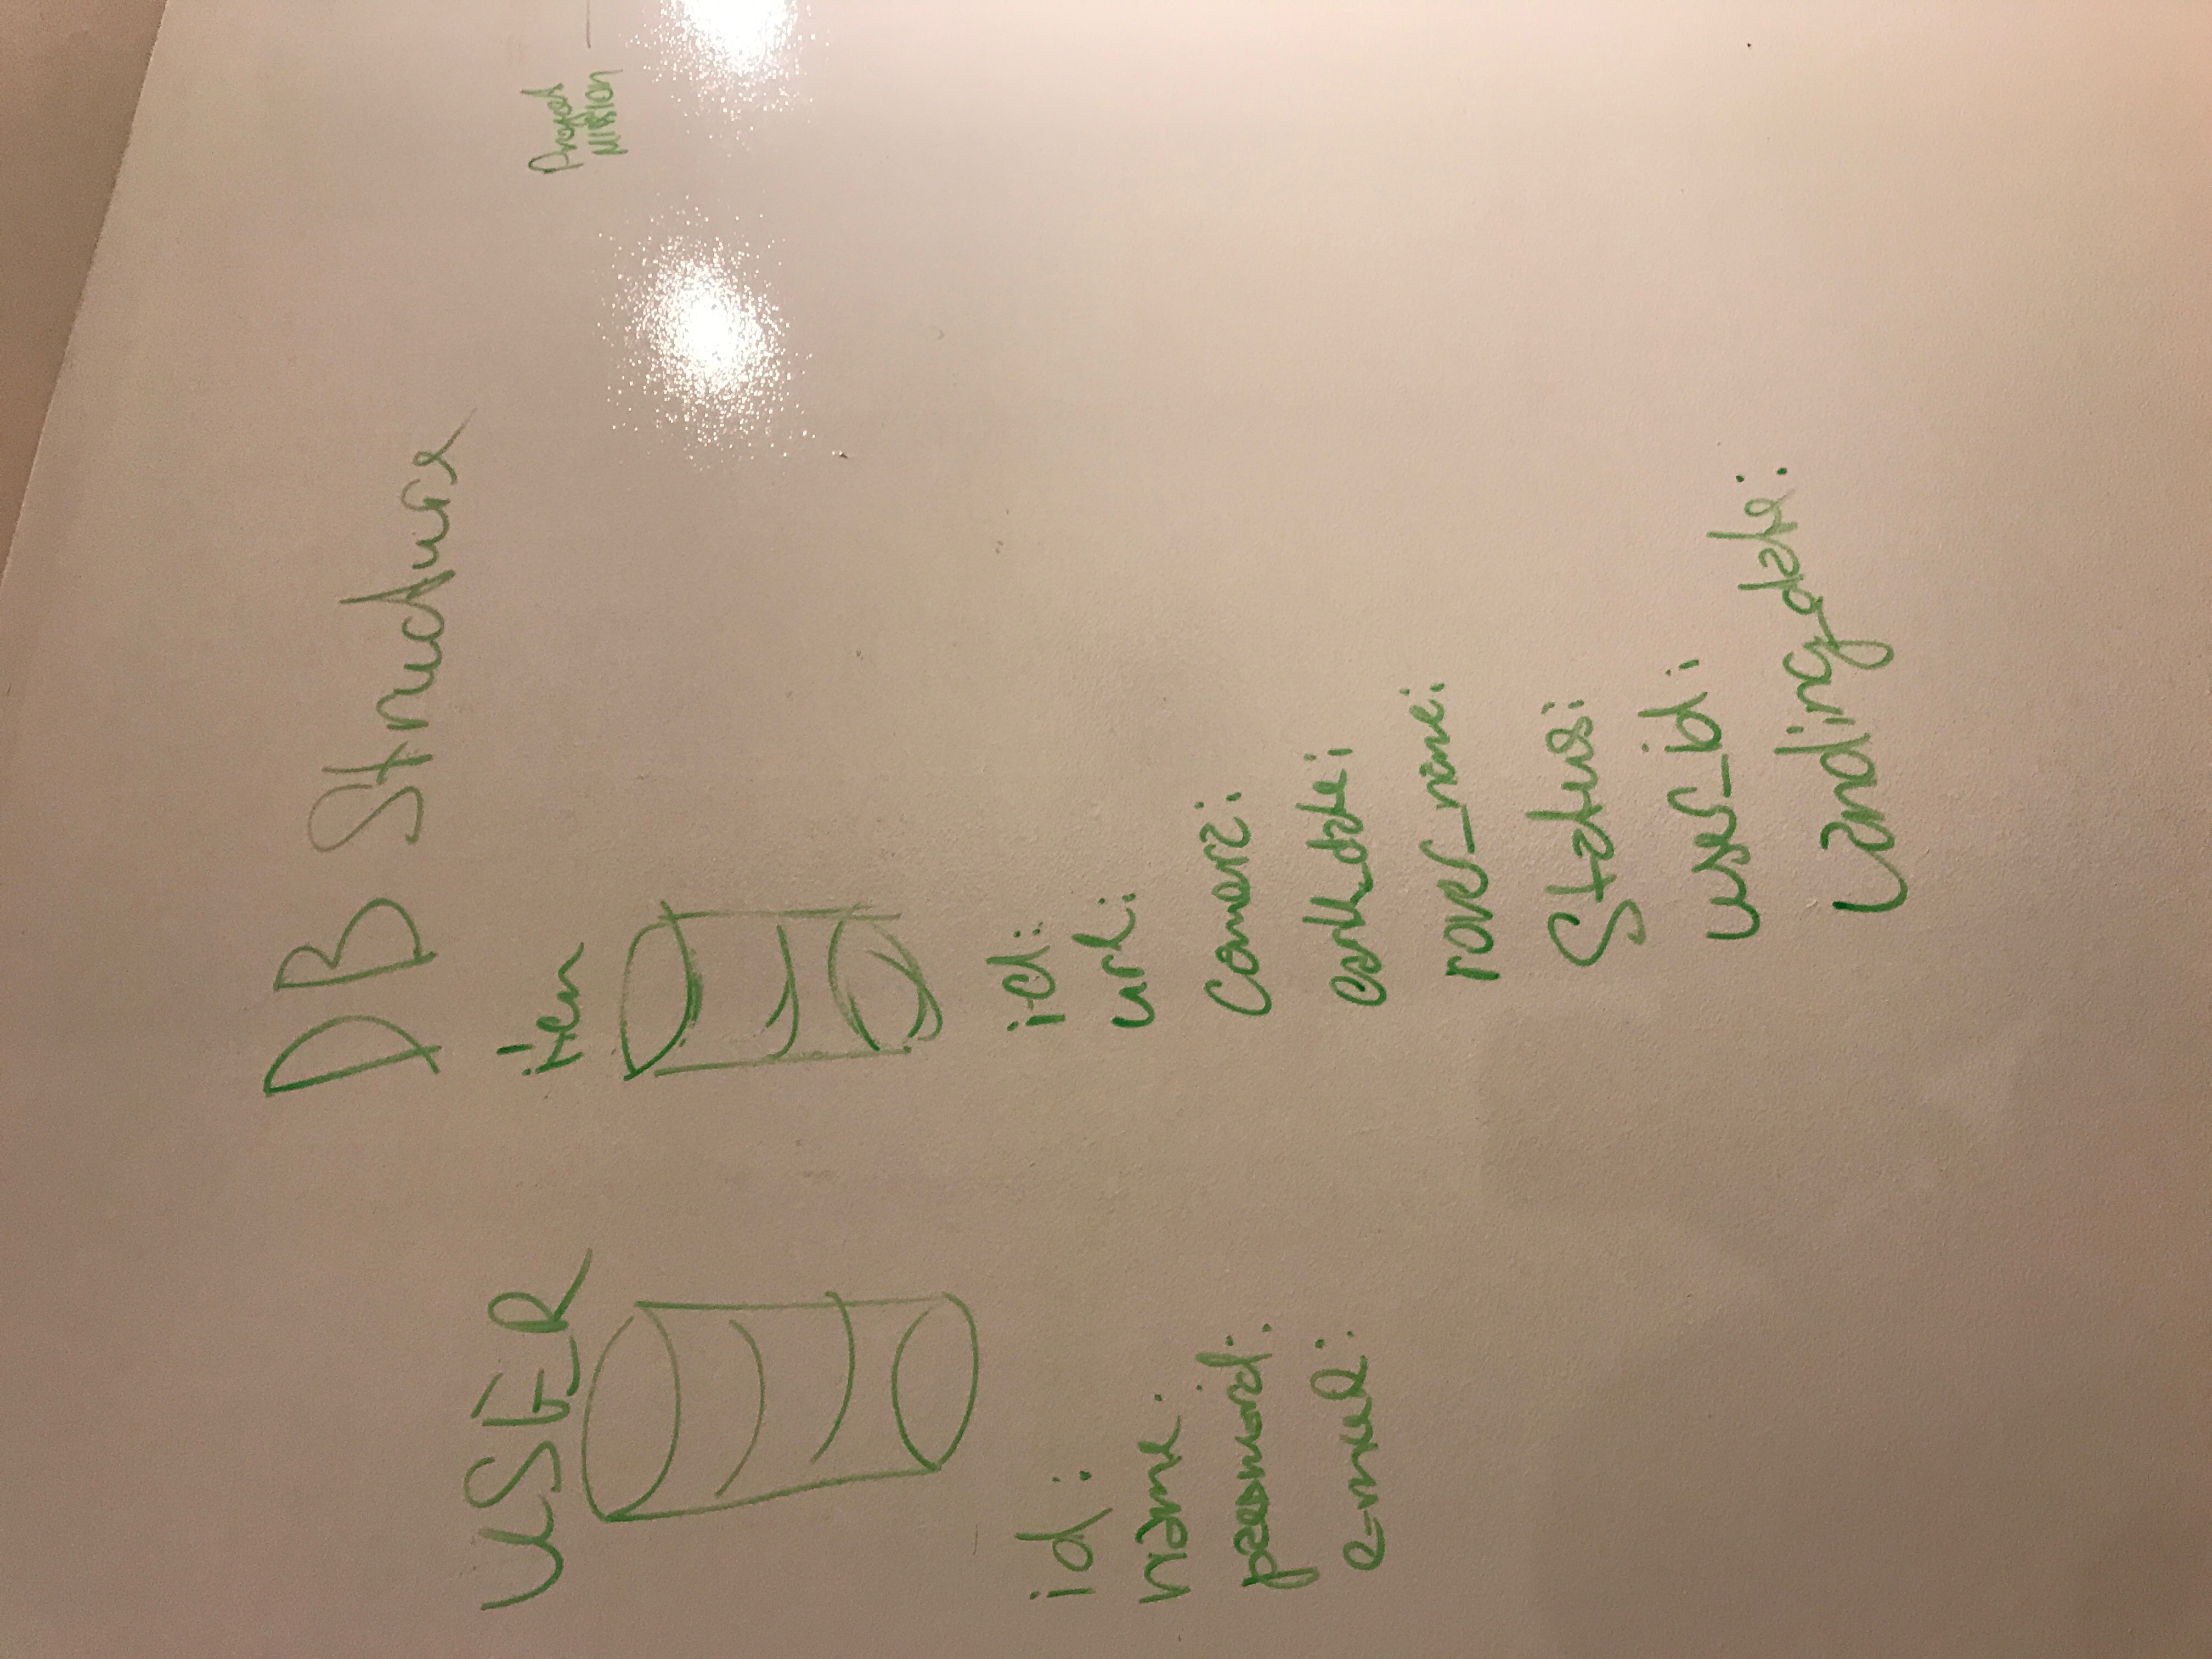 DB Structure
USER
item
id:
name:
password:
e-mail:
id:
url:
Camera:
earth_date:
rover_name:
Status:
user_id:
Landing_date:
Project
Mission